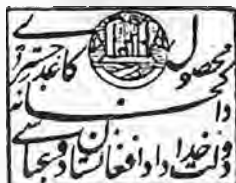 محصول کاغذ جستری
داکخانه
دولت خداداد افغانستان دو عباسی